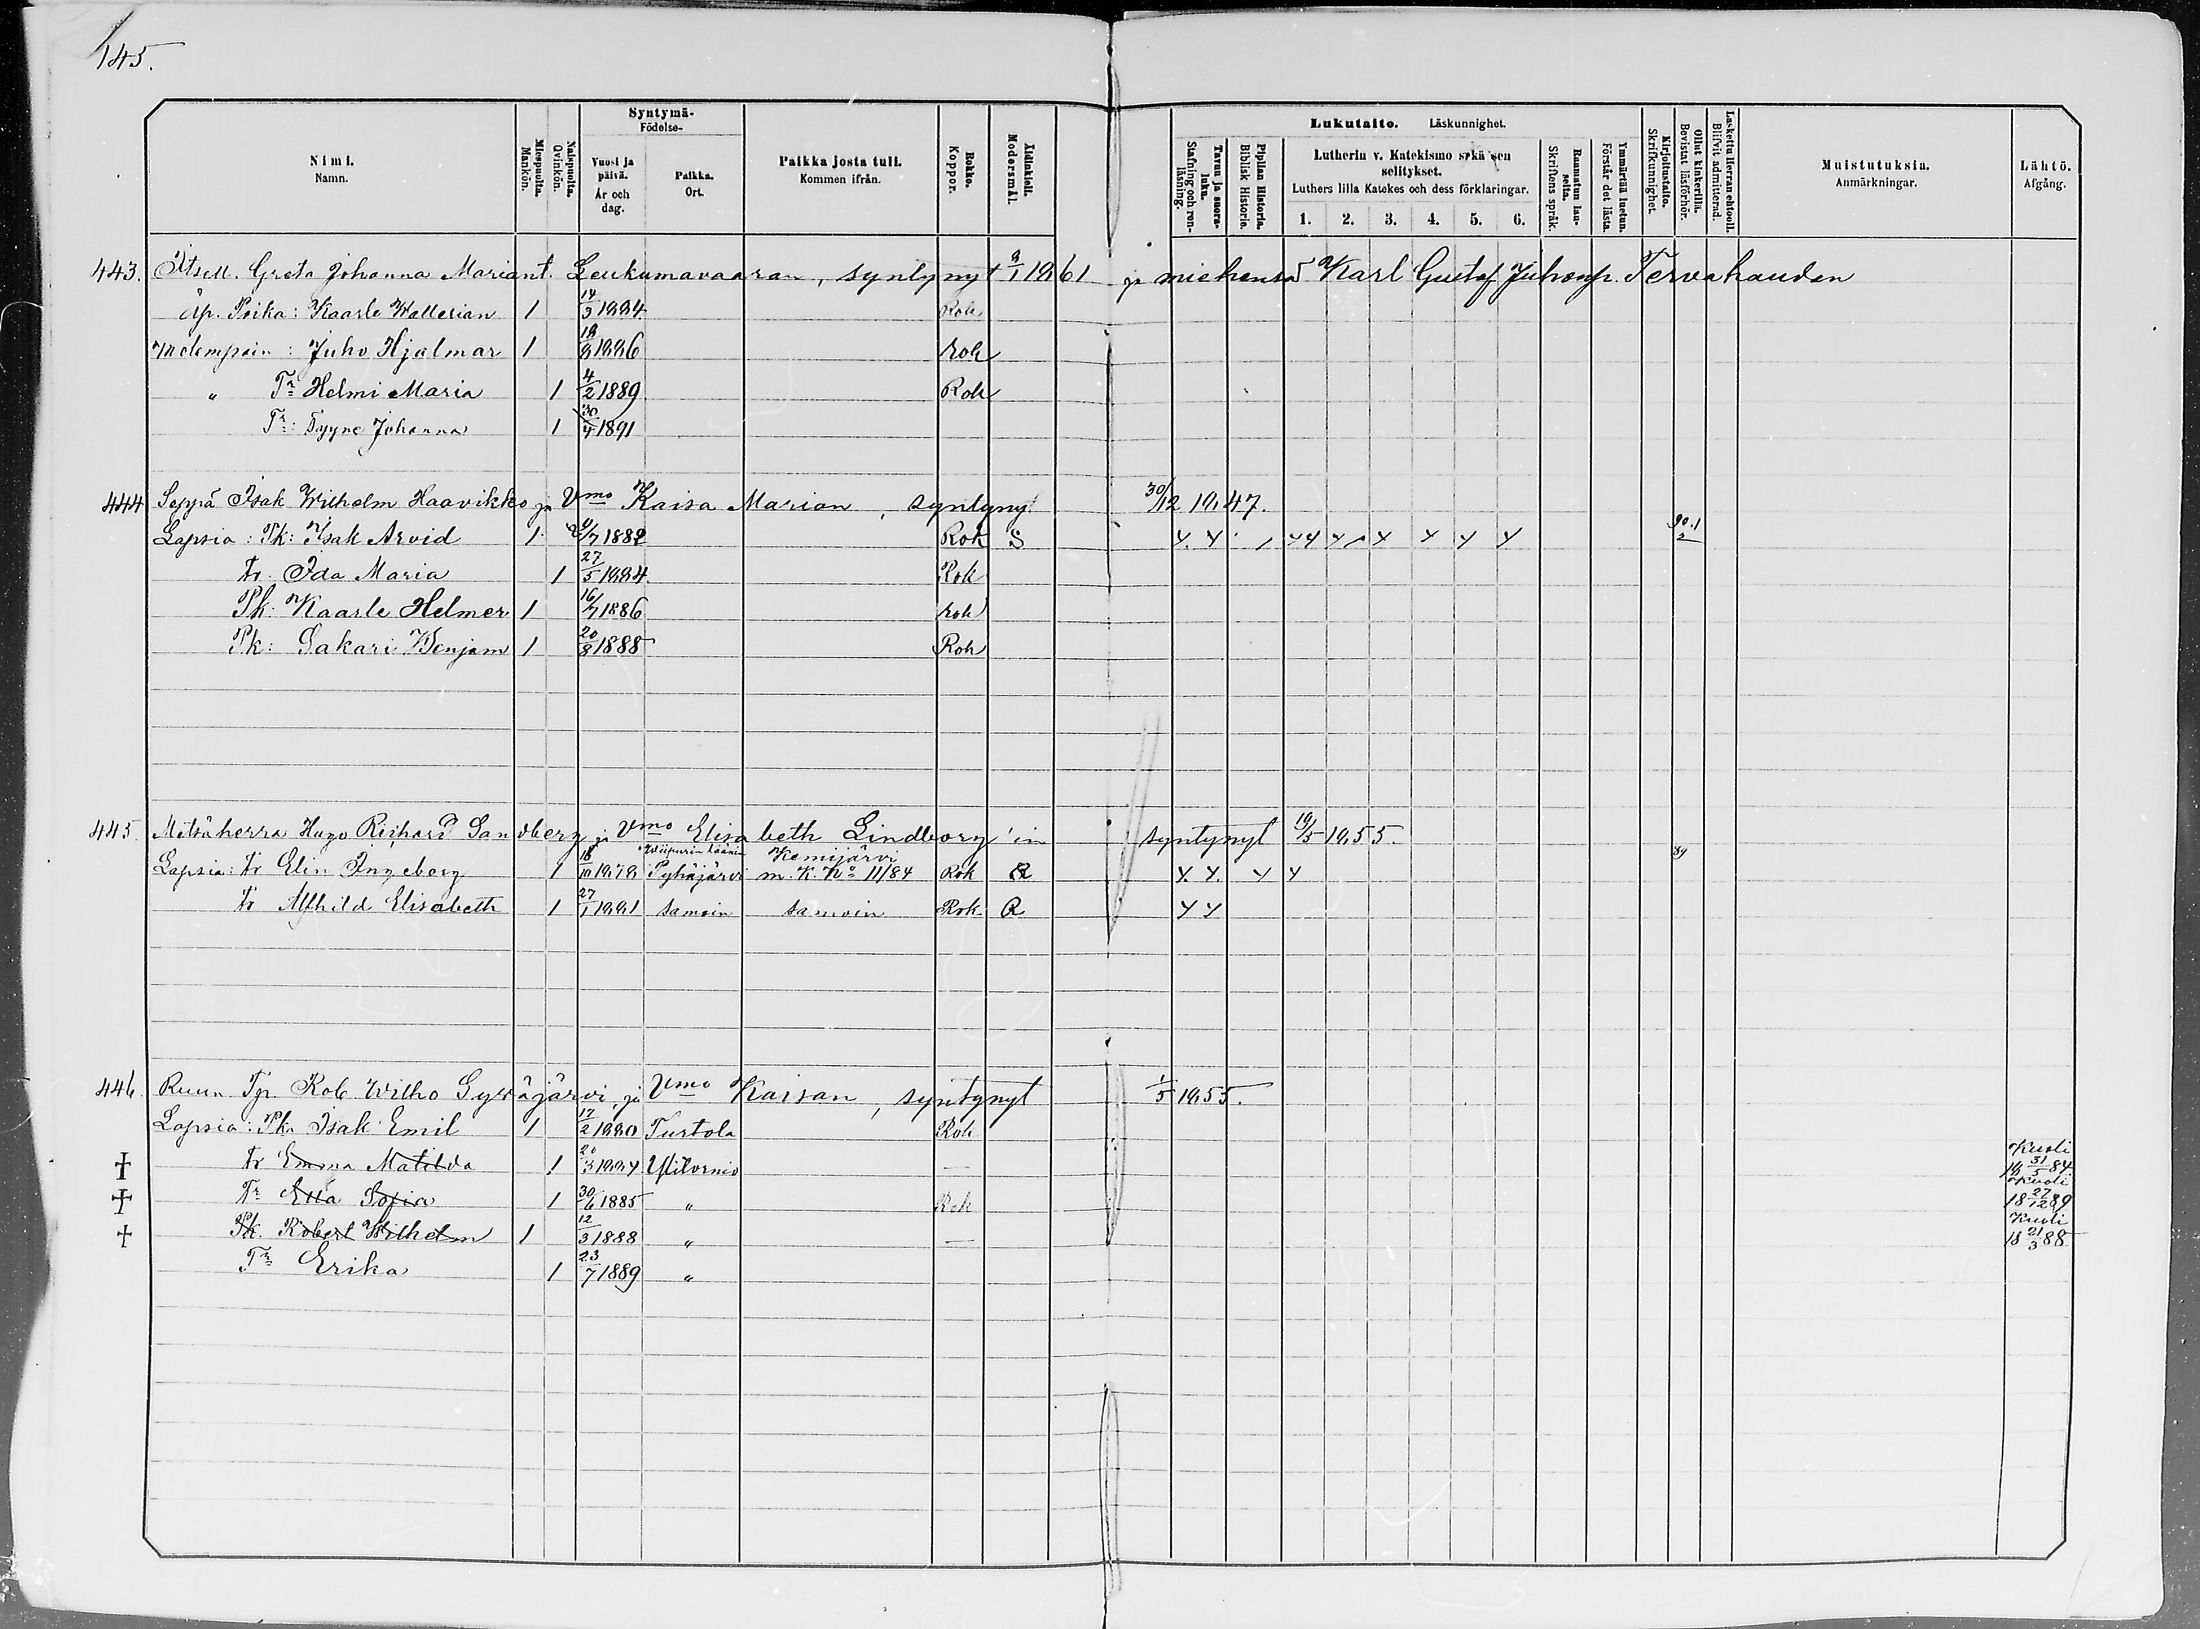 145.
Nimi.
Namn.
Miespuolta.
Mankön.
Naispuolta.
Qvinkön.
Syntymä-
Födelse-
Vuosi ja päivä.
År och dag.
Paikka.
Ort.
Paikka josta tuli.
Kommen ifrån.
Rokko.
Koppor.
Äidinkieli.
Modersmål.
Lukutaito. Läskunnighet.
Tavuu ja suora-luku.
Stafning och ren-läsning.
Piplian Historia.
Biblisk Historie.
Lutherin v. Katekismo sekä sen selitykset.
Luthers lilla Katekes och dess förklaringar.
1. 2. 3. 4. 5. 6.
Raamatun lau-seita.
Skriftens språk.
Ymmärtää luetun.
Förstår det lästa.
Kirjoitustaito.
Skrifkunnighet.
Ollut kinkerillä.
Bevistat läsförhör.
Laskettu Herran ehtooll.
Blifvit admitterad.
Muistutuksia.
Anmärkningar.
Lähtö.
Afgång.
443. Itsell. Greta Johanna Mariant. Leukumavaaran, syntynyt 1861 ja miehensä Karl Gustaf Juhonp. Tervahaudan
Äp. Poika: Kaarle Wallerian 1 14/3 1884 Rok
Molempain: Juho Hjalmar 1 18/8 1886 rok
" Tr Helmi Maria 1 4/2 1889 Rok
Tr: Tyyne Johanna 1 30/4 1891
444 Seppä Isak Wilhelm Haavikko ja Vmo Kaisa Marian, syntyny 30/12 1847.
Lapsia: Pk: Isak Arvid 1 /7 1882 Rok S 90.1
tr. Ida Maria 1 27/5 1884 Rok
Pk: Kaarle Helmer 1 16/7 1886 rok
Pk: Sakari Benjam 1 20/8 1888 Rok
445. Metsäherra Hugo Richard Sandberg ja Vmo Elisabeth Lindborg'in syntynyt 19/5 1855.
Lapsia: tr Elin Ingeborg 1 18/10 1878 Wiipurin läänin Pyhäjärvi Kemijärvi m. K. No 11/84 Rok R 89
tr Alfhild Elisabeth 1 27/1 1881 samoin samoin Rok R
446. Ruun. Tp. Rob. Wilho Syväjärvi, ja Vmo Kaisan, syntynyt 1/5 1855.
Lapsia: Pk. Isak Emil 1 17/2 1880 Turtola Rok
tr Emma Matilda 1 20/3 1884 Ylitornio — Kuoli 18 31/5 84
Tr Etla Sofia 1 30/6 1885 " Rok Kuoli 18 27/12 89
Pk. Robert Wilhelm 1 12/3 1888 " — Kuoli 18 21/3 88
Tr Erika 1 23/7 1889 "